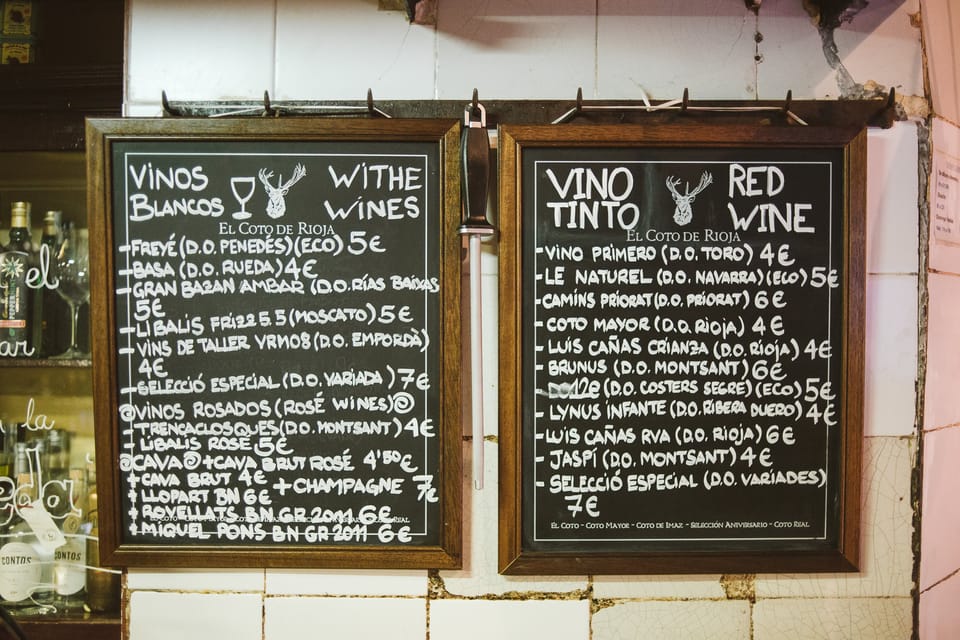 VINOS BLANCOS
WITHE WINES
EL COTO DE RIOJA
-FREYÉ (D.O. PENEDÉS)(ECO) 5€
-BASA (D.O. RUEDA) 4€
-GRAN BAZAN AMBAR (D.O. RÍAS BAIXAS
5€
-LÍBALIS FRIZZ 5.5 (MOSCATO) 5€
-VINS DE TALLER VRM08 (D.O. EMPORDÀ)
4€
-SELECCIÓ ESPECIAL (D.O. VARIADA) 7€
@VINOS ROSADOS (ROSÉ WINES)@
-TRENCACLOSQUES (D.O. MONTSANT) 4€
-LÍBALIS ROSÉ 5€
@CAVA@ +CAVA BRUT ROSÉ 4'50€
+CAVA BRUT 4€ +CHAMPAGNE 7€
+LLOPART BN 6€
+ROVELLATS BN GR 2011 6€
+MIQUEL PONS BN GR 2011 6€
VINO TINTO
RED WINE
EL COTO DE RIOJA
-VINO PRIMERO (D.O. TORO) 4€
-LE NATUREL (D.O. NAVARRA)(ECO) 5€
-CAMINS PRIORAT (D.O. PRIORAT) 6€
-COTO MAYOR (D.O. RIOJA) 4€
-LUIS CAÑAS CRIANZA (D.O. RIOJA) 4€
-BRUNUS (D.O. MONTSANT) 6€
12@ (D.O. COSTERS SEGRE)(ECO) 5€
-LYNUS INFANTE (D.O. RIBERA DUERO) 4€
-LUIS CAÑAS RVA (D.O. RIOJA) 6€
-JASPÍ (D.O. MONTSANT) 4€
-SELECCIÓ ESPECIAL (D.O. VARIADES)
7€
EL COTO - COTO MAYOR - COTO DE IMAZ - SELECCIÓN ANIVERSARIO - COTO REAL
el
ar
la
CONTOS
CONTOS